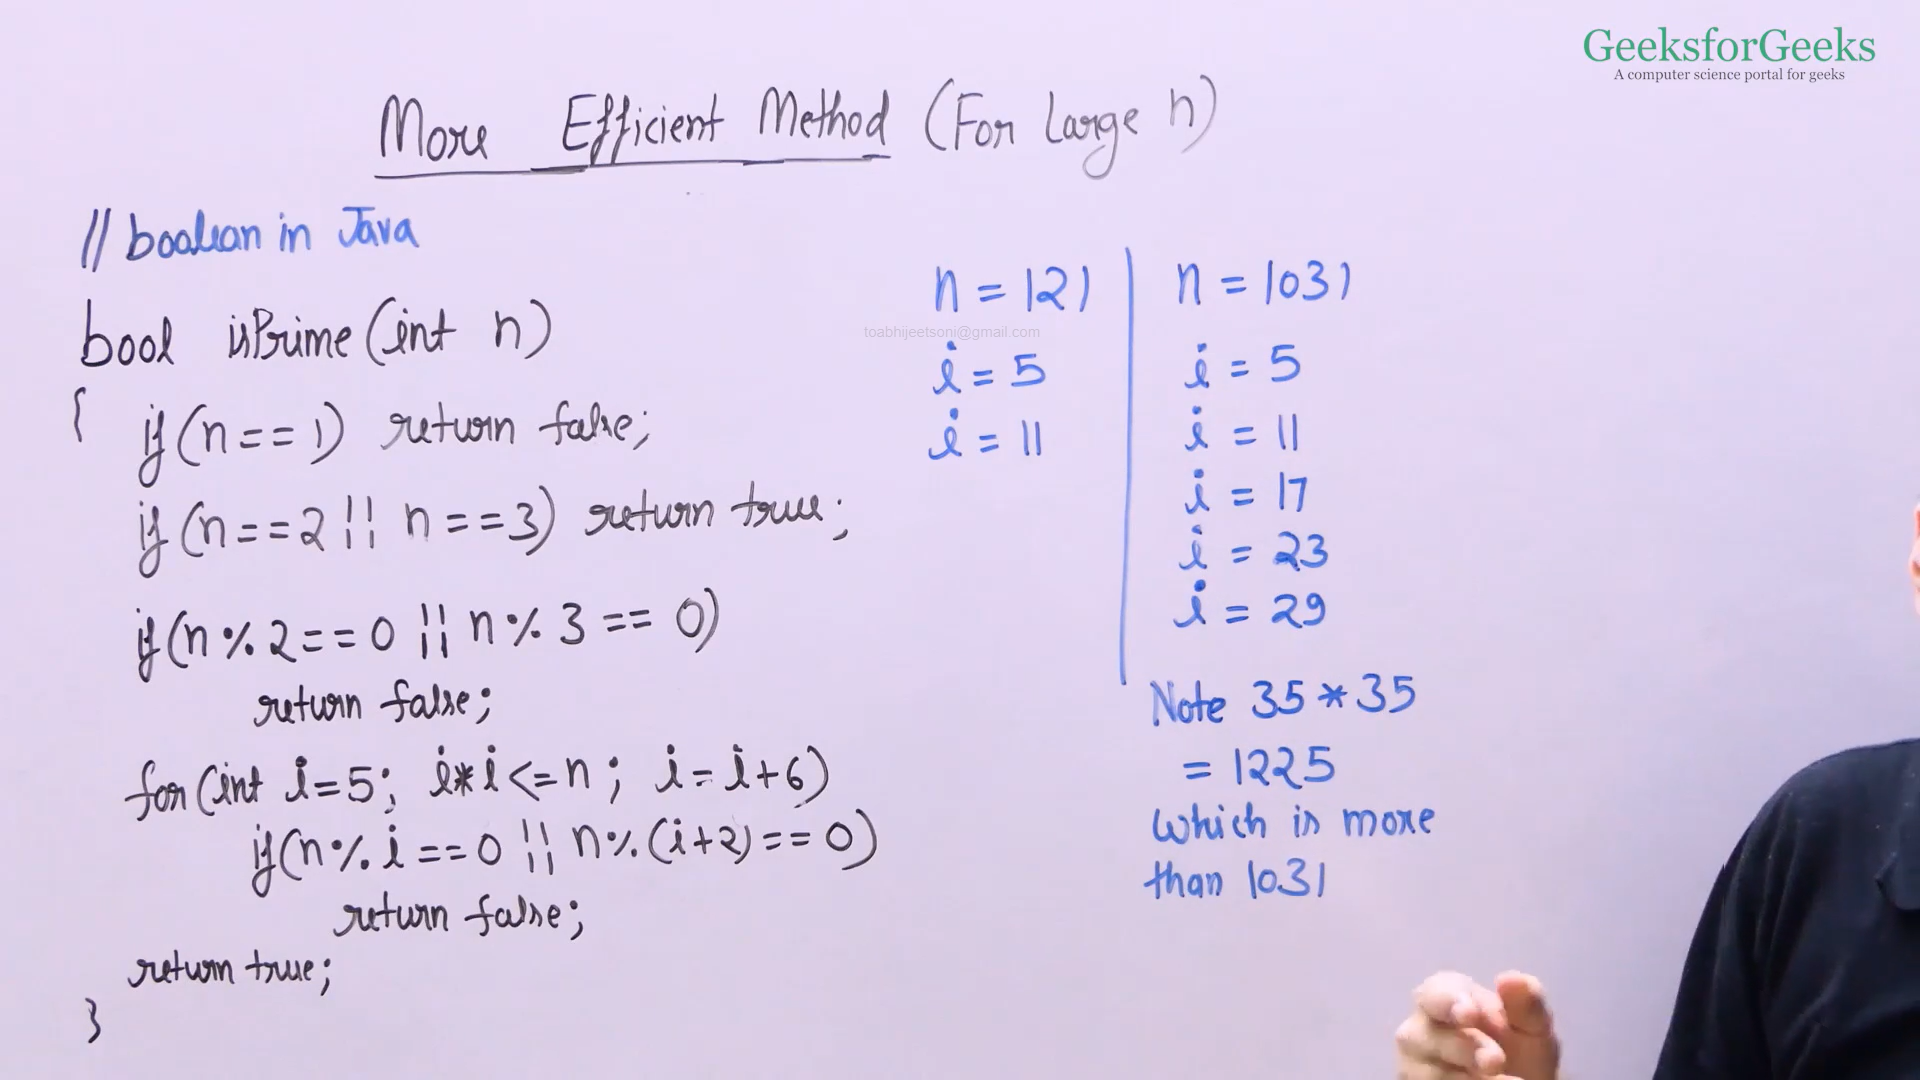 GeeksforGeeks
A computer science portal for geeks
More Efficient Method (For Large n)
// boolean in Java
bool isPrime(int n)
{ if(n==1) return false;
if(n==2 || n==3) return true;
if(n%2==0 || n%3==0)
return false;
for(int i=5; i*i<=n; i=i+6)
if(n%i==0 || n%(i+2)==0)
return false;
return true;
}
n = 121
toabhijeetsoni@gmail.com
i = 5
i = 11
n = 1031
i = 5
i = 11
i = 17
i = 23
i = 29
Note 35*35
= 1225
which is more
than 1031